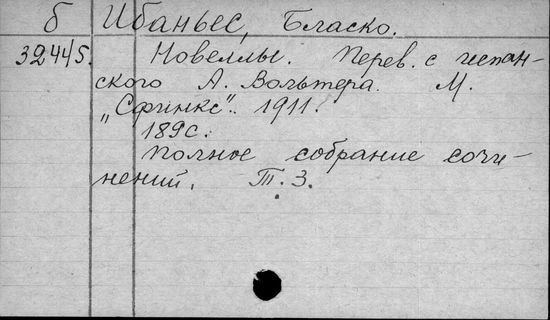 б Ибаньес, Бласко.
32445. Новеллы. Перев. с испан-
ского А. Вольтера. М.
„Сфинкс". 1911.
189 с.
Полное собрание сочи-
нений. Т. 3.